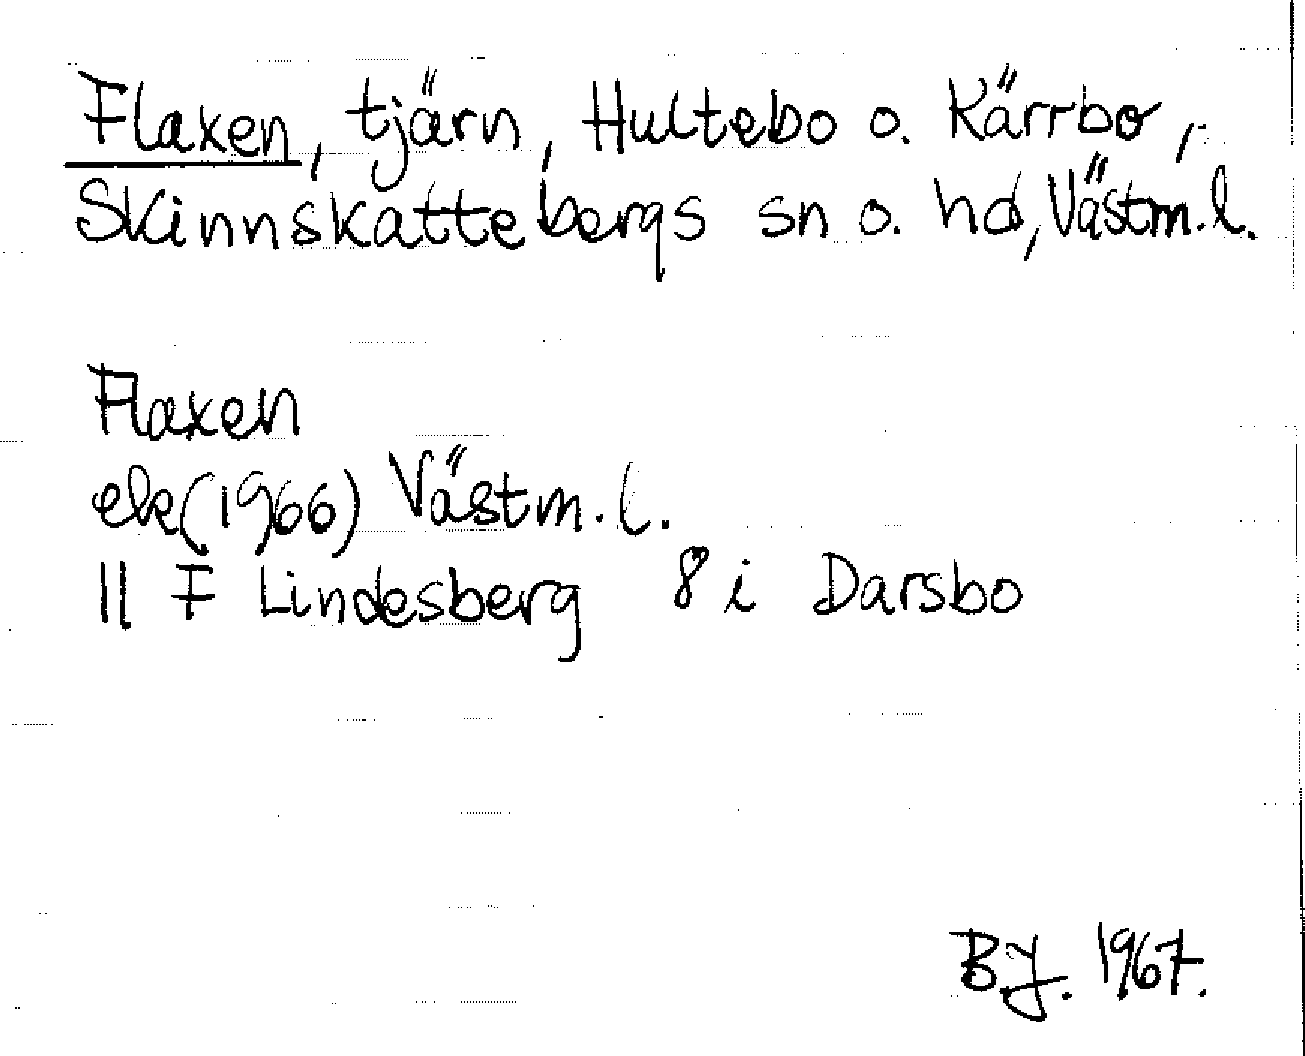 Flaxen, tjärn, Hultebo o. Kärrbo,
Skinnskattebergs sn o. hd, Västm.l.
Flaxen
ek(1966) Västm.l.
11 F Lindesberg 8 i Darsbo
BJ. 1967.